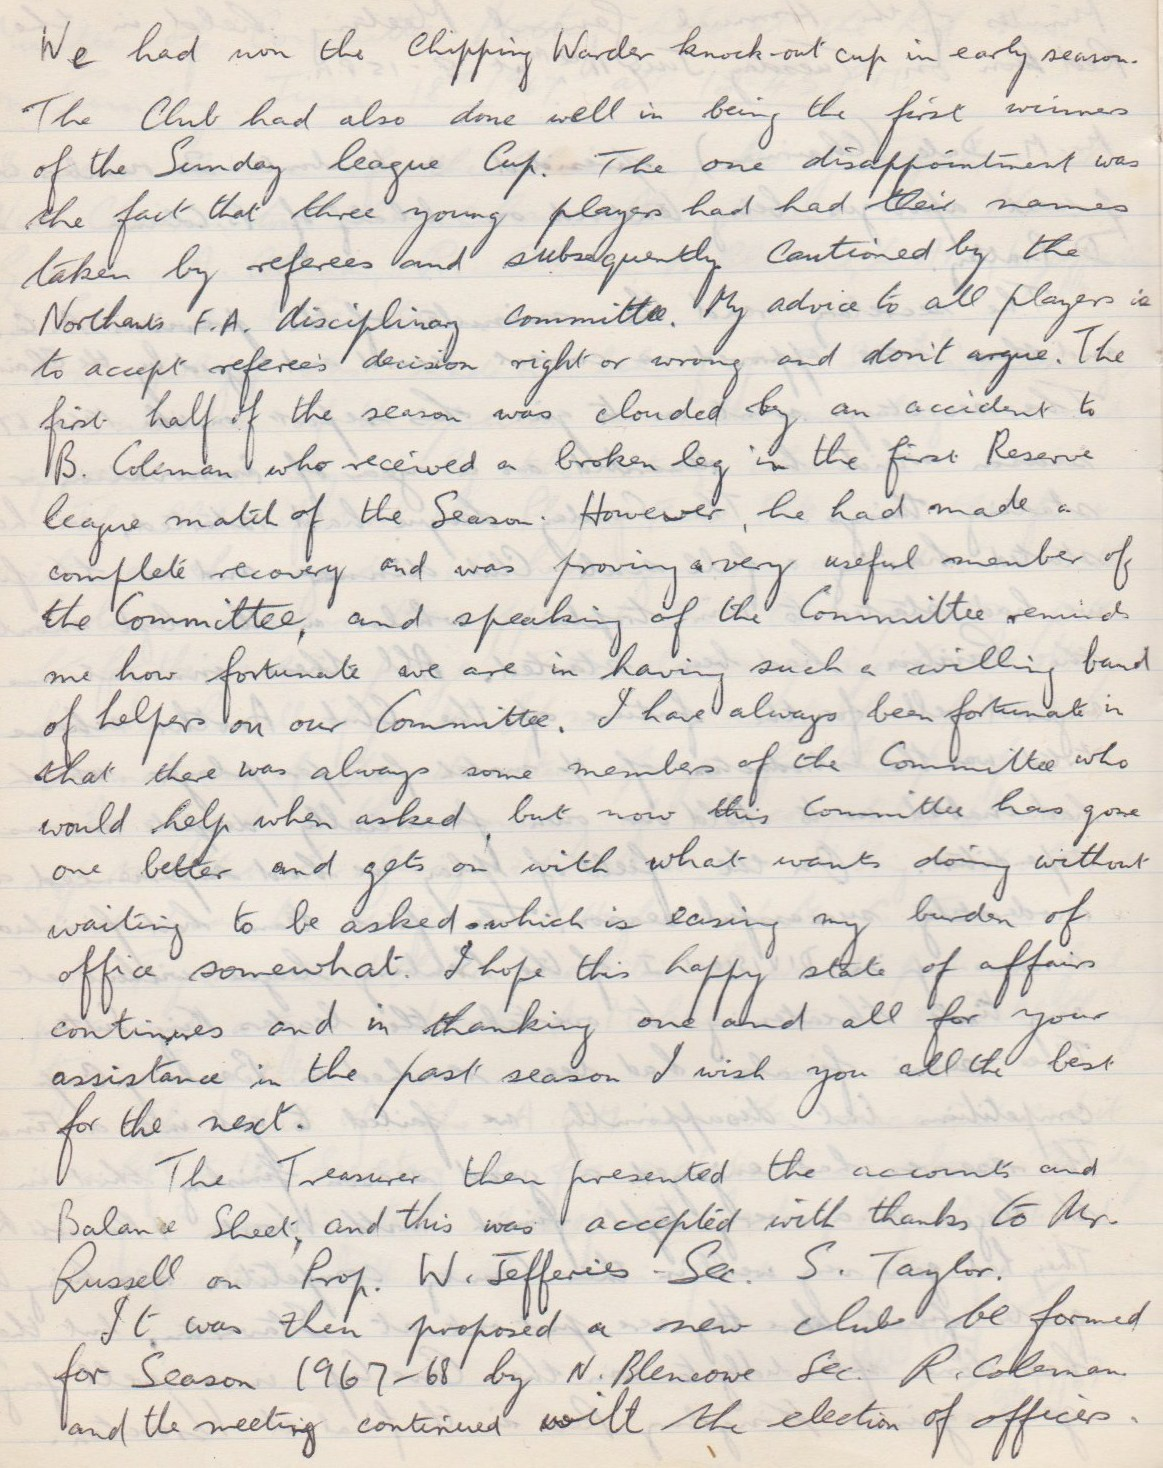 We had won the Chipping Warden knock-out cup in early season.
The Club had also done well in being the first winners
of the Sunday league Cup. The one disappointment was
the fact that three young players had had their names
taken by referees and subsequently cautioned by the
Northants F.A. disciplinary committee. My advice to all players is
to accept referee's decision right or wrong and don't argue. The
first half of the season was clouded by an accident to
B. Coleman who received a broken leg in the first Reserve
league match of the Season. However, he had made a
complete recovery and was proving a very useful member of
the Committee, and speaking of the Committee reminds
me how fortunate we are in having such a willing band
of helpers on our Committee. I have always been fortunate in
that there was always some members of the Committee who
would help when asked, but now this Committee has gone
one better and gets on with what wants doing without
waiting to be asked. which is easing my burden of
office somewhat. I hope this happy state of affairs
continues and in thanking one and all for your
assistance in the past season I wish you all the best
for the next.
The Treasurer then presented the accounts and
Balance Sheet, and this was accepted with thanks to Mr.
Russell on Prop. W. Jefferies - Sec. S. Taylor.
It was then proposed a new club be formed
for Season 1967-68 by N. Blencowe Sec. R. Coleman
and the meeting continued with the election of officers.